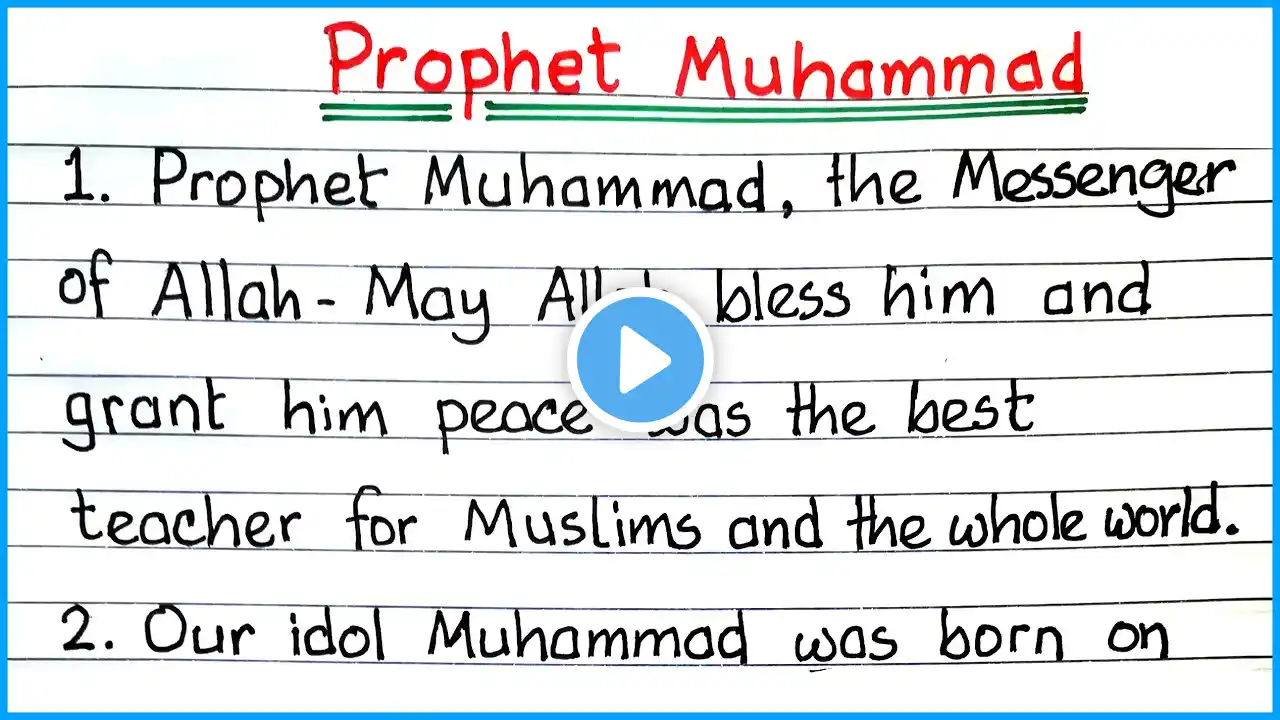 Prophet Muhammad
1. Prophet Muhammad, the Messenger
of Allah - May Allah bless him and
grant him peace was the best
teacher for Muslims and the whole world.
2. Our idol Muhammad was born on